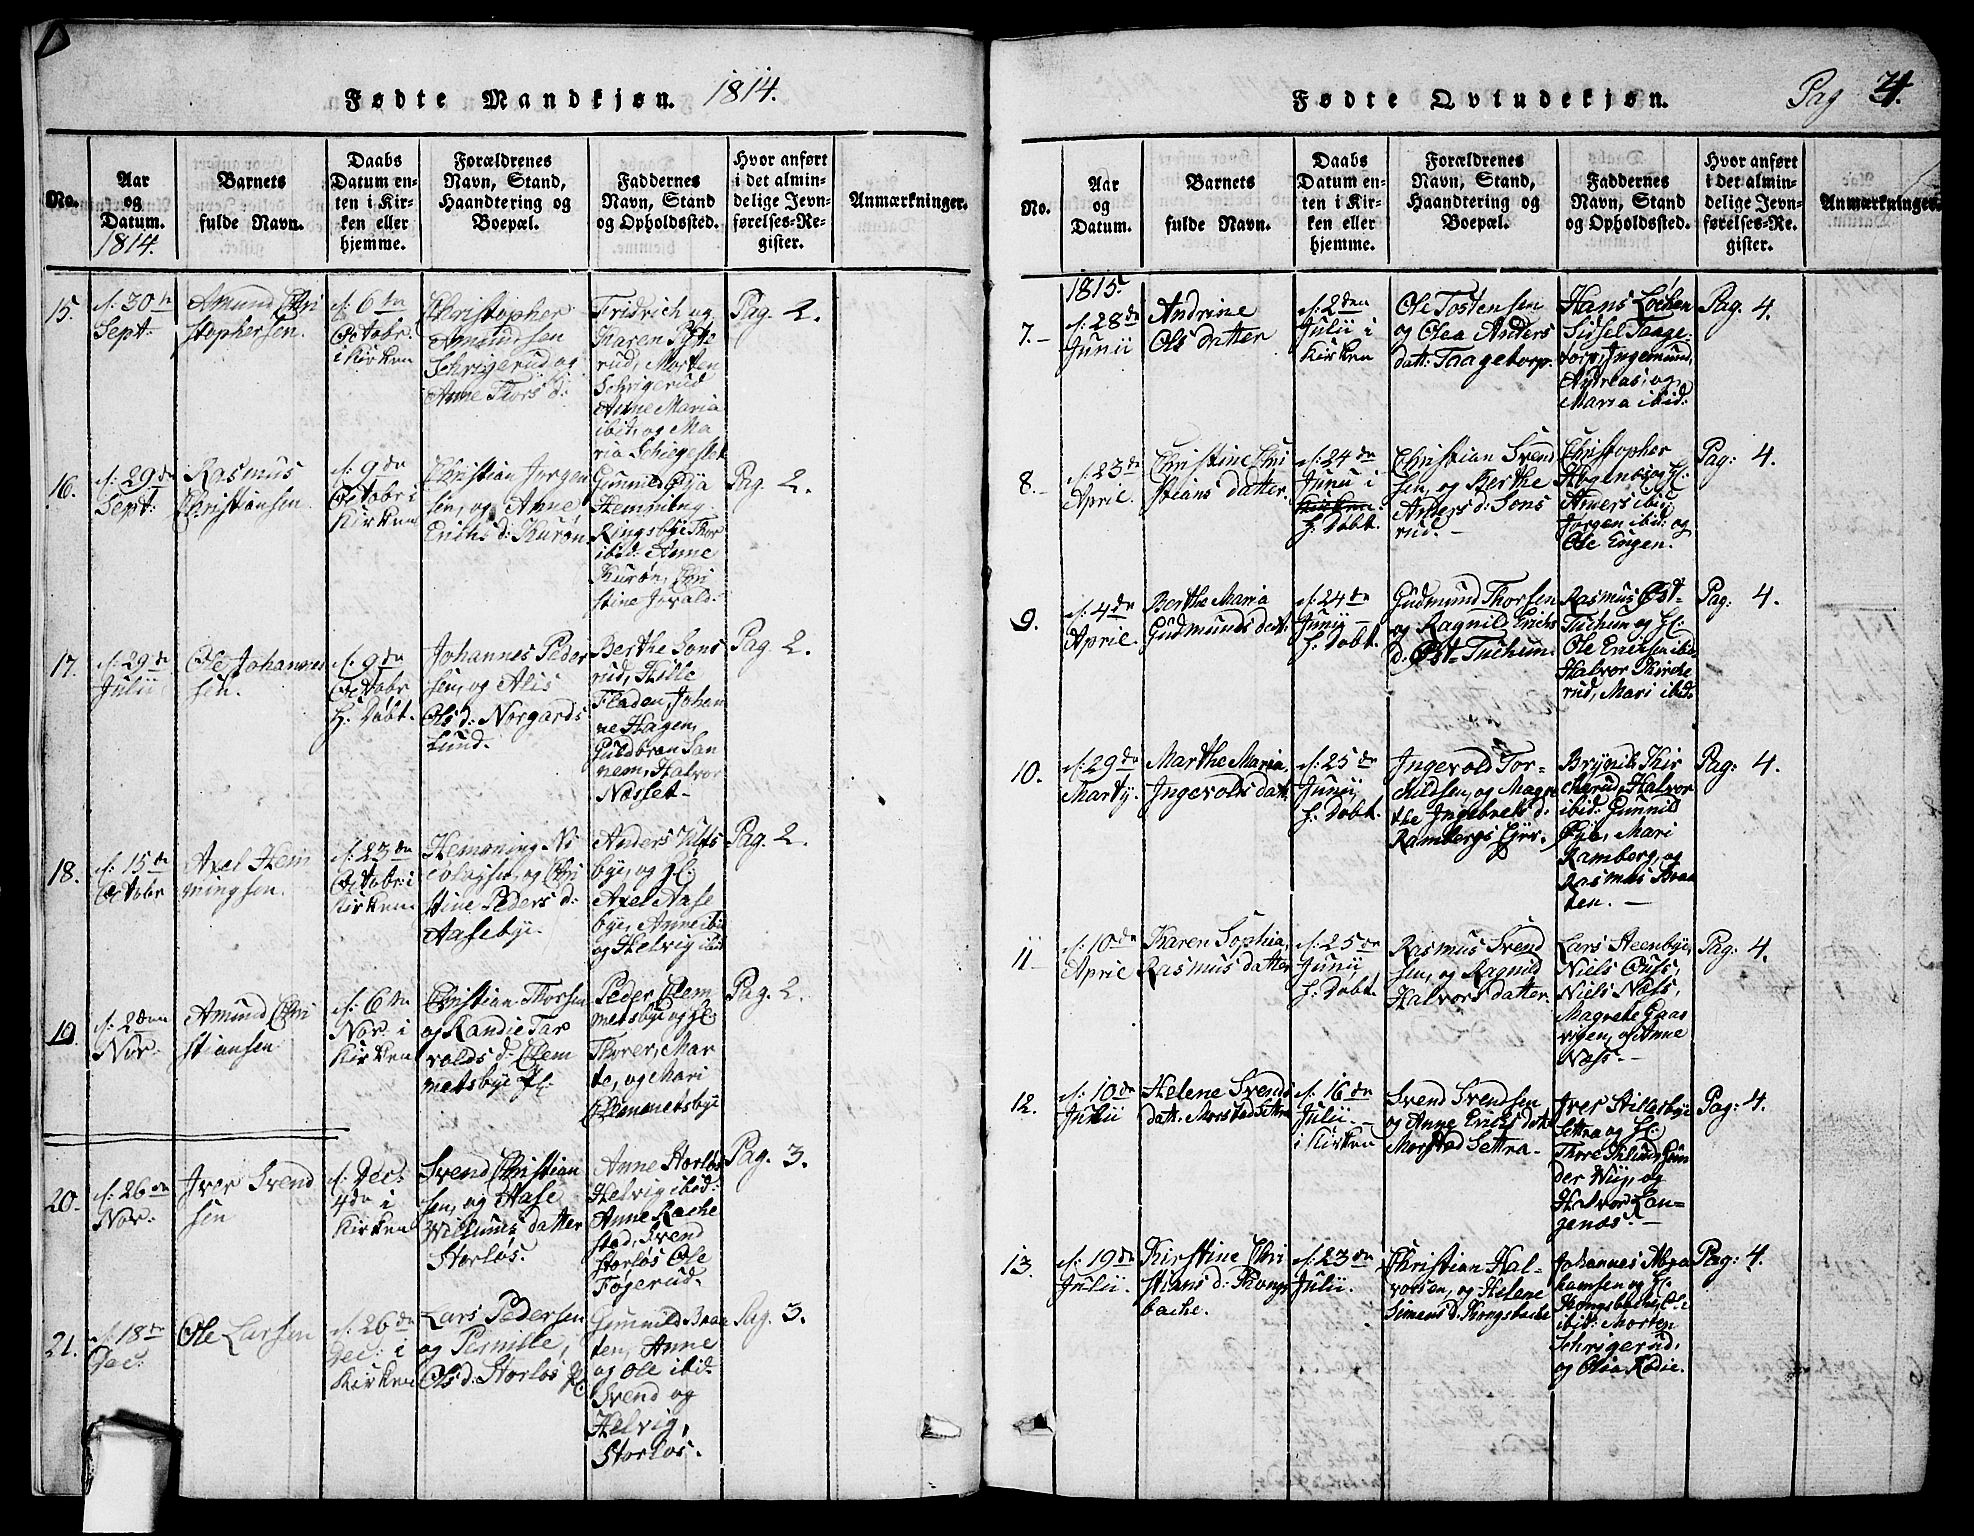 Fødte Mandkjøn. 1814.
No.
Aar
og
Datum.
1814.
Barnets
fulde Navn.
Daabs
Datum en-
ten i Kir-
ken eller
hjemme.
Forældrenes
Navn, Stand,
Haandtering og
Boepæl.
Faddernes
Navn, Stand
og Opholdssted.
Hvor anført
i det almin-
delige Jevn-
førelses-Re-
gister.
Anmærkninger.
15.
d: 30te
Sept:
Amund Chri
stophersen.
d: 6te
Octobr:
i Kirken
Christopher
Amundsen
Schrigerud og
Anne Thors d:
Fridrich og
Karen
rud, Morten
Schrigerud
Anne Maria
ibit, og Ma
ria
Pag. 2.
16.
d: 29de
Sept:
Rasmus
Christiansen.
d: 9de
Octobr i
Kirken
Christian Jørgen
sen, og Anne
Erichs d: Kurøn
Gunnil Øya
Hemming
Ringsbye Thor
ibid: Anne
Kurøn, Chri
stine
Pag. 2.
17.
d: 29de
Julii
Ole Johannes
sen.
d: 9de
Octobr
H: Døbt.
Johannes Peder
sen, og Alis
Ols d: Norgards
Lund.
Berthe Sons
rud, Kille
Fladen, Johan
ne Hagen,
Guldbran San
nem, Halvor
Næsset-
Pag. 2.
18.
d: 15de
Octobr
Axel Hem
mingsen.
d: 23de
Octobr: i
Kirken
Hemming Ni
colajsen, og Chri
stine Peders d:
Aasebye.
Anders
bye, og H:
Axel Aase
bye, Anne ibi
og Helvig ibid
Pag. 2.
19.
d: 2den
Nov:
Amund Chri
stiansen
d: 6te
Nov: i
Kirken
Christian Thorsen
og Randie Tar
valds d: Clem
metsbye
Peder Clem
metsbye og H:
Thorer, Mar
te, og Mari
Clemmetsbye
Pag. 2.
20.
d: 26de
Nov:
Iver Svend
sen
d: Dec:
4de i
Kirken
Svend Christian
sen, og Aase
Willums datter
Storløs.
Anne Storløs
Helvig ibid:
Anne Rache
stad, Svend
Storløs Ole
Fogerud.
Pag. 3.
21.
d: 18de
Dec:
Ole Larsen
d: 26de
Dec: i
Kirken
Lars Pedersen
og Pernille,
Ols d: Storløs
Gunnild Braa
ten, Anne
og Ole ibid:
Svend og
Helvig,
Storløs.
Pag. 3.
Fødte Qvindekjøn. Pag 4.
No.
Aar
og
Datum.
Barnets
fulde Navn.
Daabs
Datum en-
ten i Kir-
ken eller
hjemme.
Forældrenes
Navn, Stand,
Haandtering og
Boepæl.
Faddernes
Navn, Stand
og Opholdssted.
Hvor anført
i det almin-
delige Jevn-
førelses-Re-
gister.
Anmærkninger.
1815.
7.-
d: 28de
Junii
Andrine
Ols datter
d: 2den
Julii i
Kirken
Ole Tostensen
og Olea Anders
datt: Taagetorp.
Hans Løchen
Sidsel Taage-
torp, Ingemund,
Andreas, og
Maria ibid:
Pag. 4.
8.-
d: 23de
April.
Christine Chri
stians datter.
d: 24de
Junii i
Kirken
H: Døbt.
Christian Svend
sen, og Berthe
Anders d: Sons
rud.-
Christopher
Hogenbøe, og H:
Anders ibid:
Jørgen ibid: og
Ole Engen.
Pag: 4.
9.
d: 4de
April.
Berthe Maria
Gudmunds datt:
d: 24de
Junij-
H: Døbt.
Gudmund Thorsen
og Ragnil Erichs
d: Øst-Tuchun.
Rasmus Øst-
Tuchun og H:
Ole Ericsen ibid
Halvor Kirche
rud, Mari ibid.
Pag: 4.
10.
d: 29de
Martij.
Marthe Maria,
Ingevolds datt:
d: 25de
Junij
H: Døbt.
Ingevold Tor-
childsen, og Magre
the Ingebrets d:
Rambergs Ejer.
Brynil Kir
cherud, Halvor
ibid: Gunnild
Øye, Mari
Ramberg, og
Rasmus Braa
ten.-
Pag: 4.
11-
d: 10de
April
Karen Sophia,
Rasmus datter
d: 25de
Junii
H: Døbt.
Rasmus Svend
sen, og Ragnild
Halvors datter.
Lars Steenbye,
Niels Ouss,
Niels Næss,
Magrete Gaas
vigen, og Anne
Næss.-
Pag: 4.
12.
d: 10de
Julii
Helene Svends
datt: Morstad Settra
d: 16de
Julii.-
i Kirken
Svend Svendsen
og Anne Erichs datt:
Morstad Settra.
Iver Stillesbye
Settra og H:
Thore Klund,
der Wiig, og
Halvor Lan-
genæs.-
Pag: 4.
13.
d: 19de
Julii.
Kirstine Chri
stians d: Kongs
bache.
d: 23de
Julii.
Christian Hal-
vorsen, og Helene
Simens d: Kongsbache
Johannes Abra
hamsen og H:
Kongsbache, Ole
ibid: Morten
Schrigerud,
og Olia Rødie.
Pag: 4.